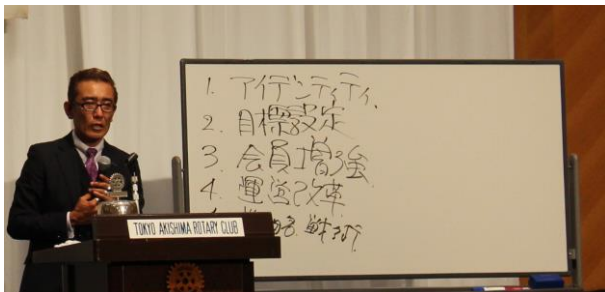 1. アイデンティティ
2. 目標設定
3. 会員増強
4. 運営改革
TOKYO AKISHIMA ROTARY CLUB